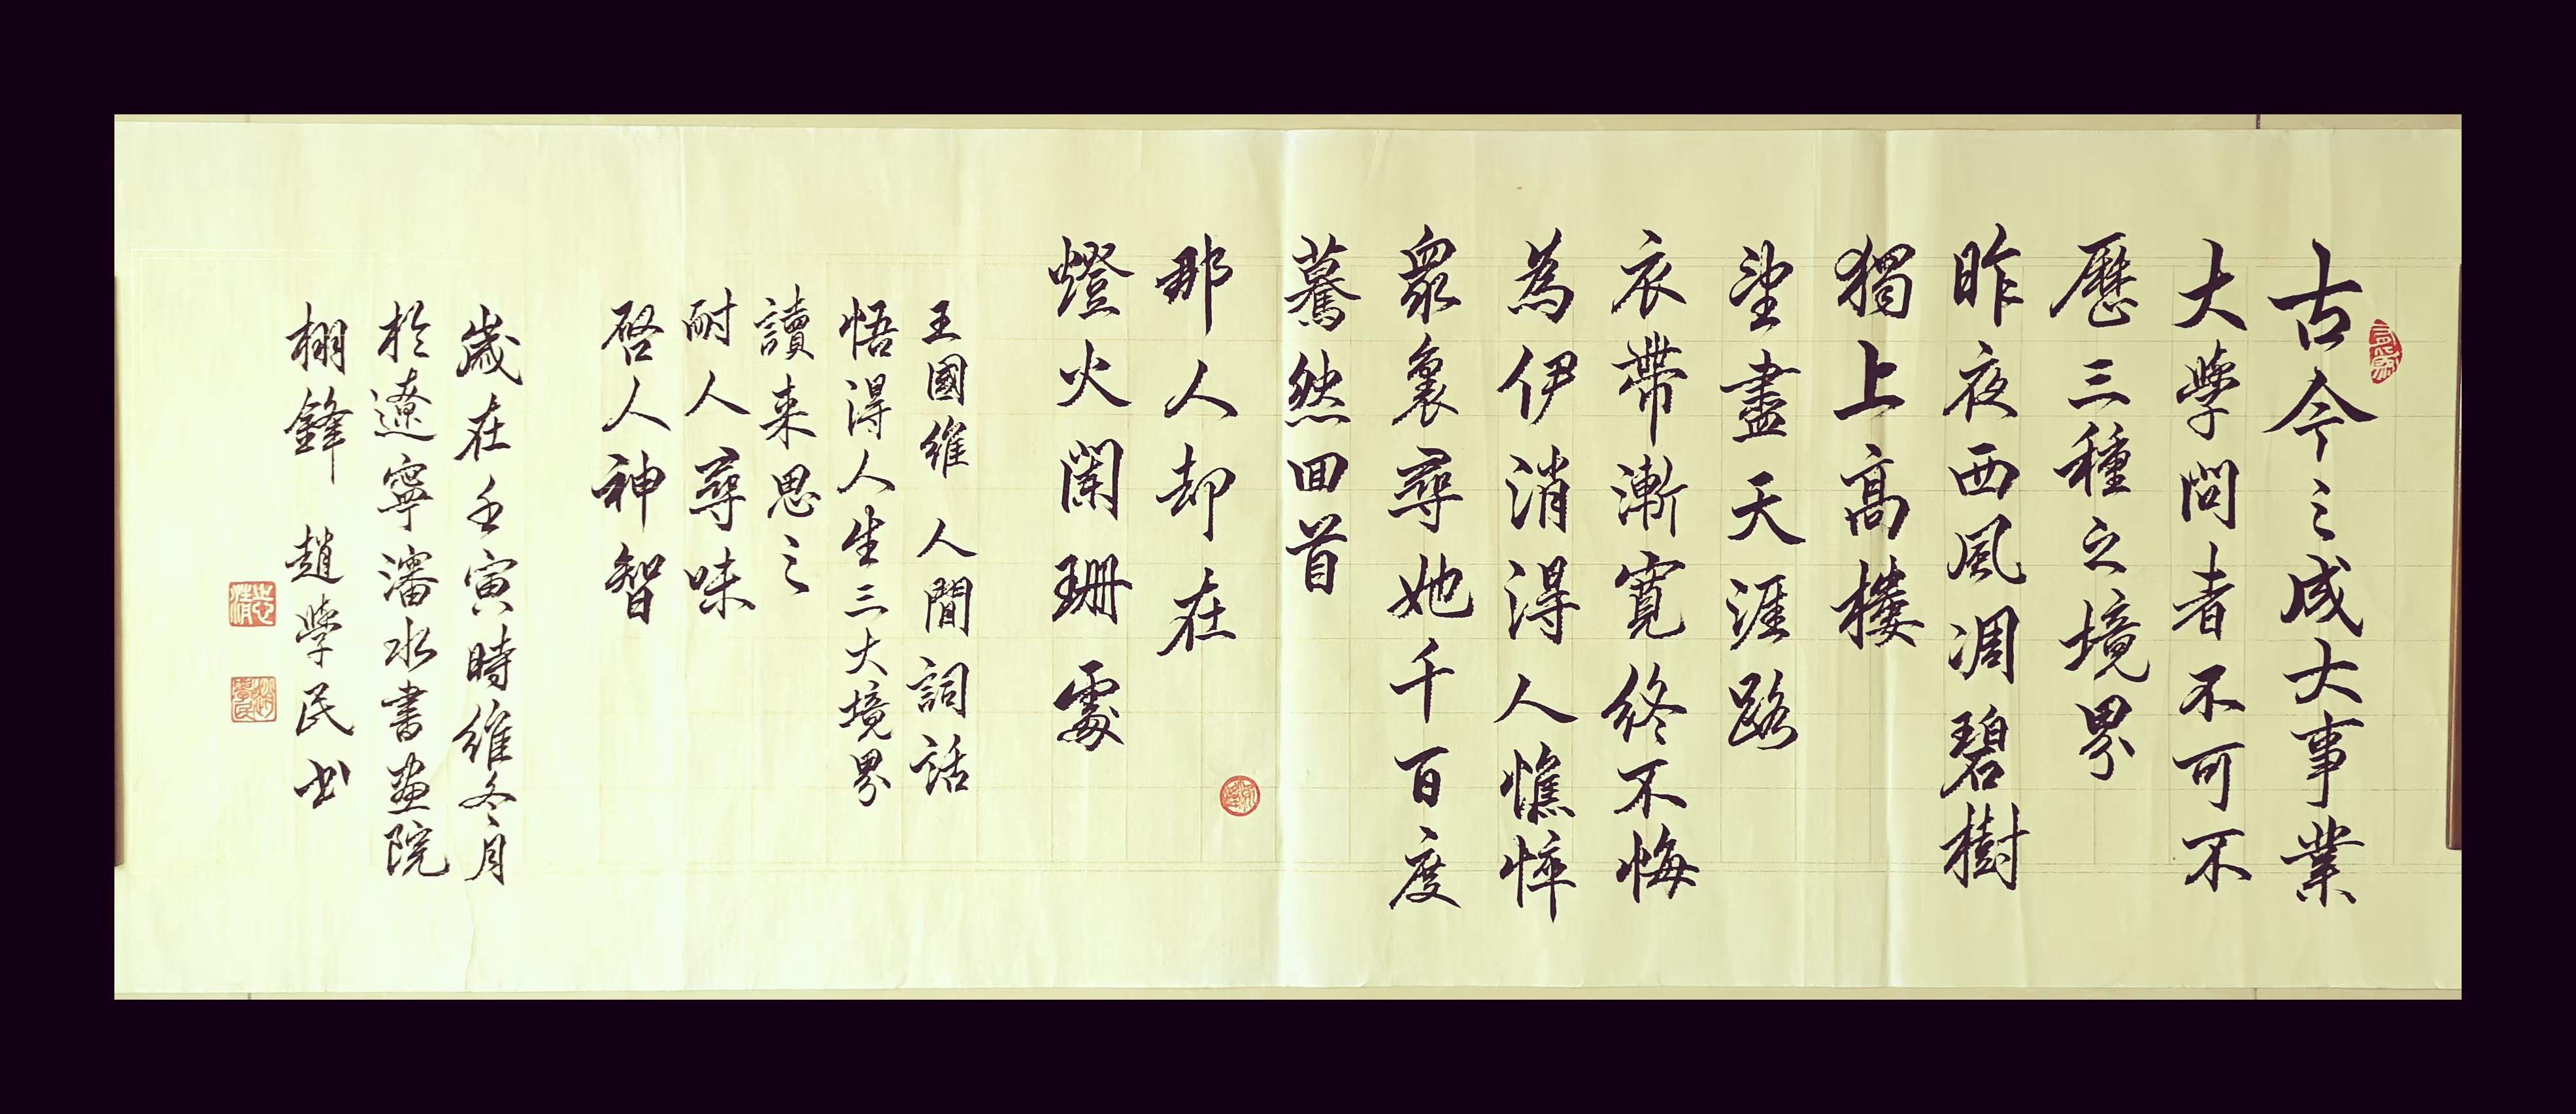 古今之成大事業
大學問者不可不
歷三種之境界
昨夜西風凋碧樹
獨上高樓
望盡天涯路
衣帶漸寬終不悔
為伊消得人憔悴
眾裏尋她千百度
驀然回首
那人却在
燈火闌珊處
王國維 人間詞話
悟得人生三大境界
讀来思之
耐人尋味
啓人神智
歲在壬寅時維冬月
於遼寧瀋水書畫院
棚鋒 趙學民书